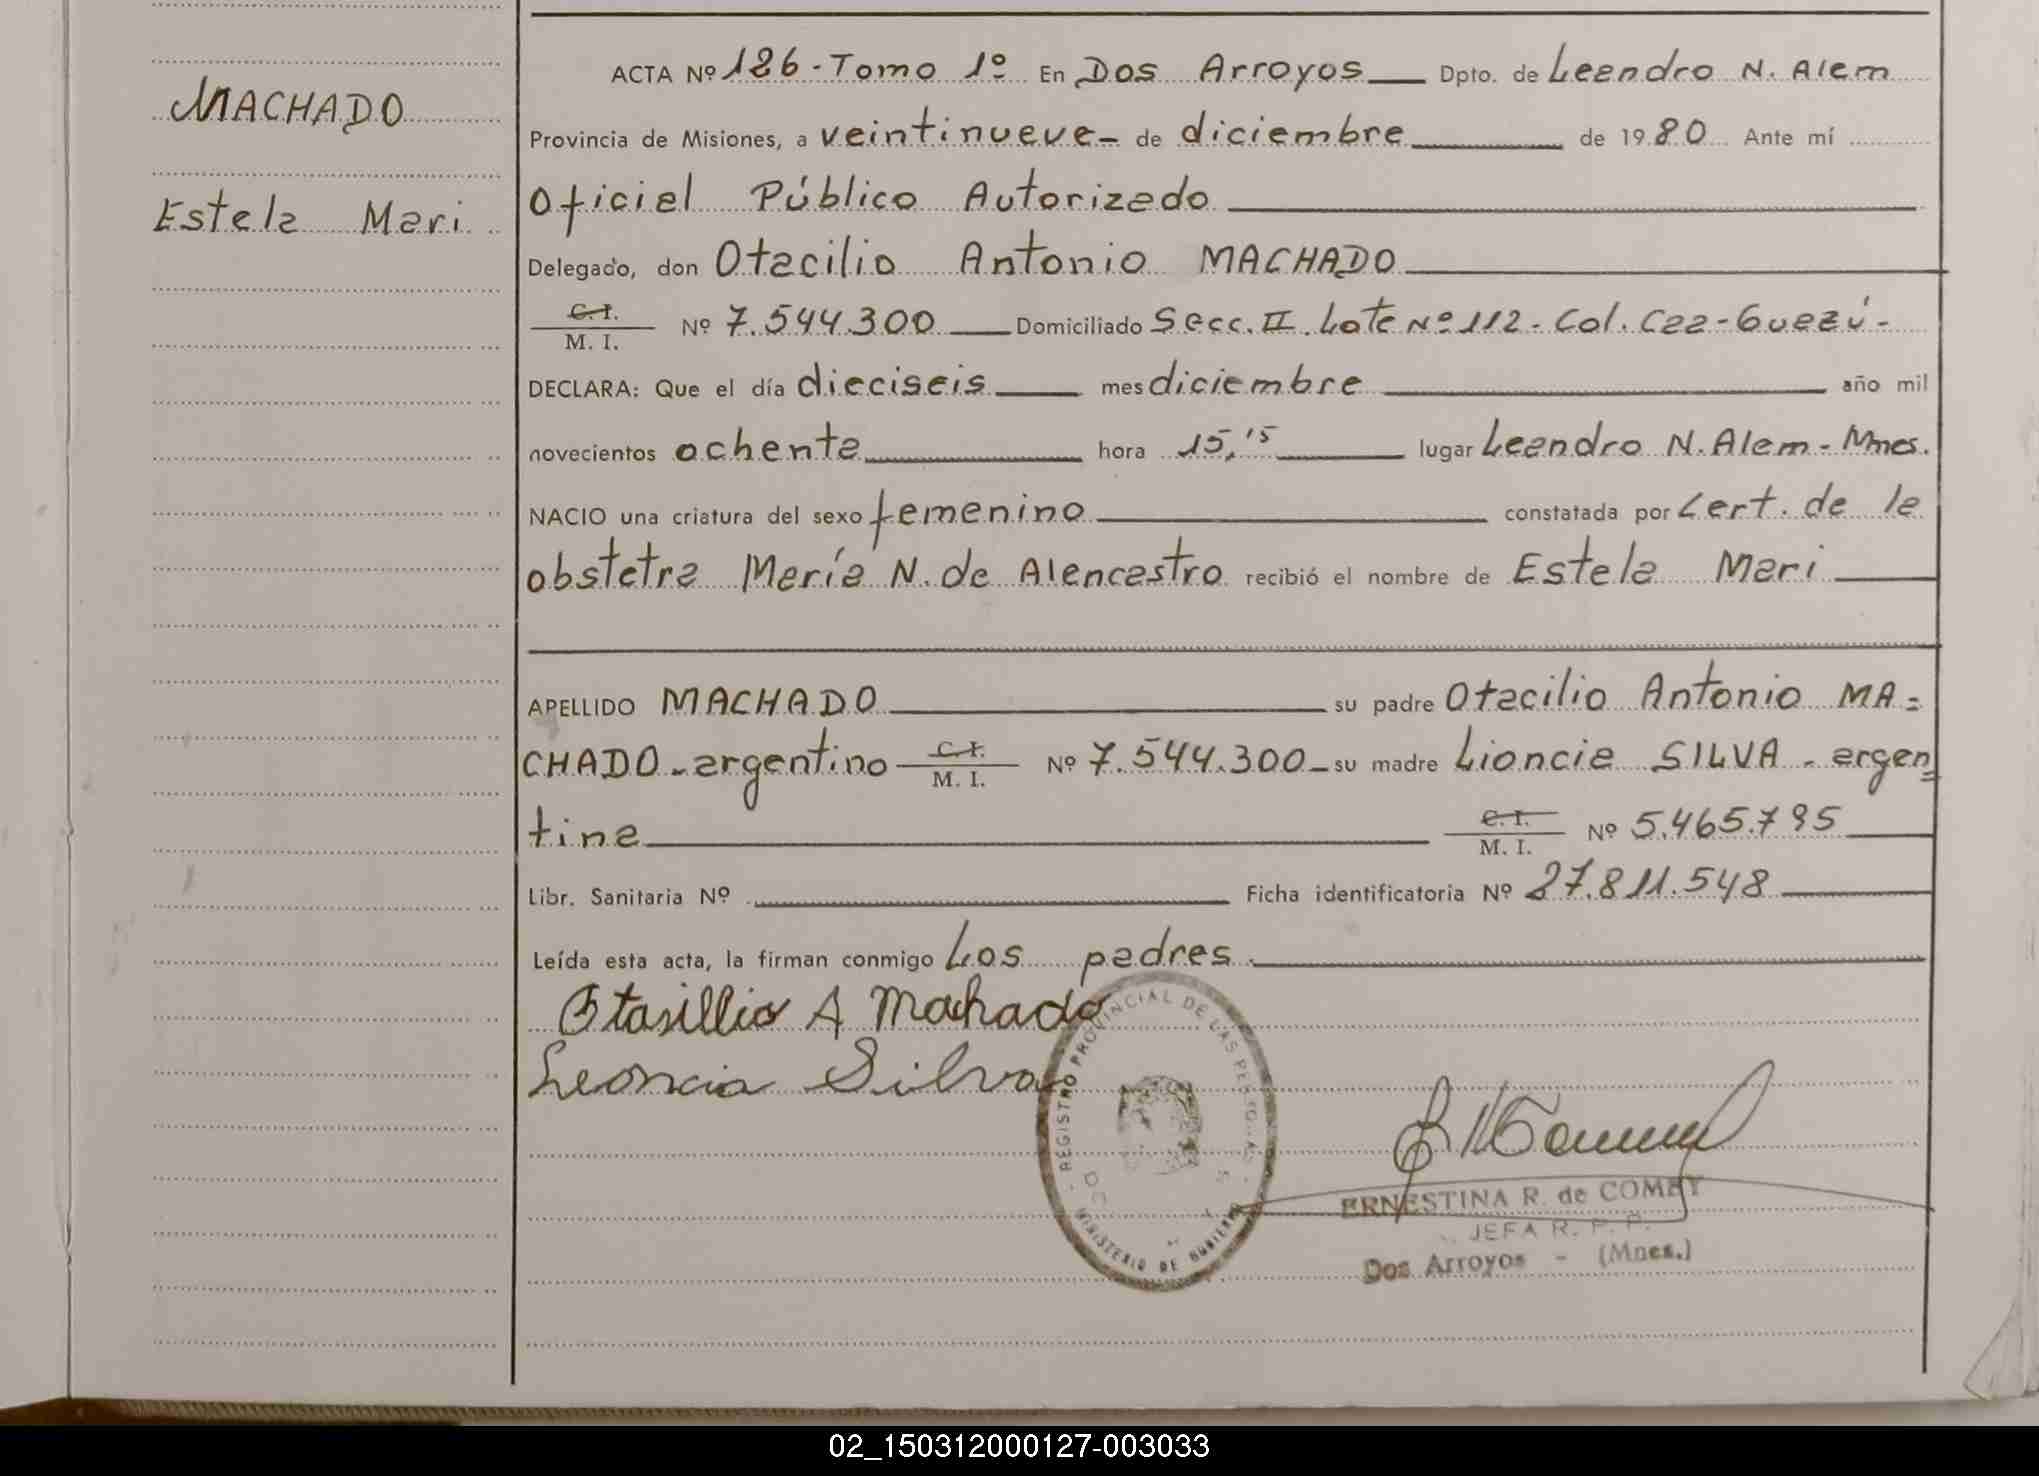 MACHADO
Estela Mari
ACTA Nº 126 - Tomo 1º En Dos Arroyos Dpto. de Leandro N. Alem
Provincia de Misiones, a veintinueve - de diciembre de 1980 Ante mí
Oficial Público Autorizado
Delegado, don Otacilio Antonio MACHADO
C. I.
M. I. Nº 7.544.300 Domiciliado Secc. II. Lote Nº 112 - Col. Caa-Guazú -
DECLARA: Que el día dieciseis mes diciembre año mil
novecientos ochenta hora 15,15 lugar Leandro N. Alem - Mnes.
NACIO una criatura del sexo femenino constatada por Cert. de la
obstetra María N. de Alencastro recibió el nombre de Estela Mari
APELLIDO MACHADO su padre Otacilio Antonio MA=
CHADO - argentino C. I. M. I. Nº 7.544.300 - su madre Lioncia SILVA - argen=
tina C. I. M. I. Nº 5.465.795
Libr. Sanitaria Nº Ficha identificatoria Nº 27.811.548
Leída esta acta, la firman conmigo Los padres.
Otasillio A Machado
Leoncia Silva
REGISTRO PROVINCIAL DE LAS PERSONAS
MINISTERIO DE GOBIERNO
ERNESTINA R. de COMEY
JEFA R. P. P.
Dos Arroyos - (Mnes.)
02_150312000127-003033